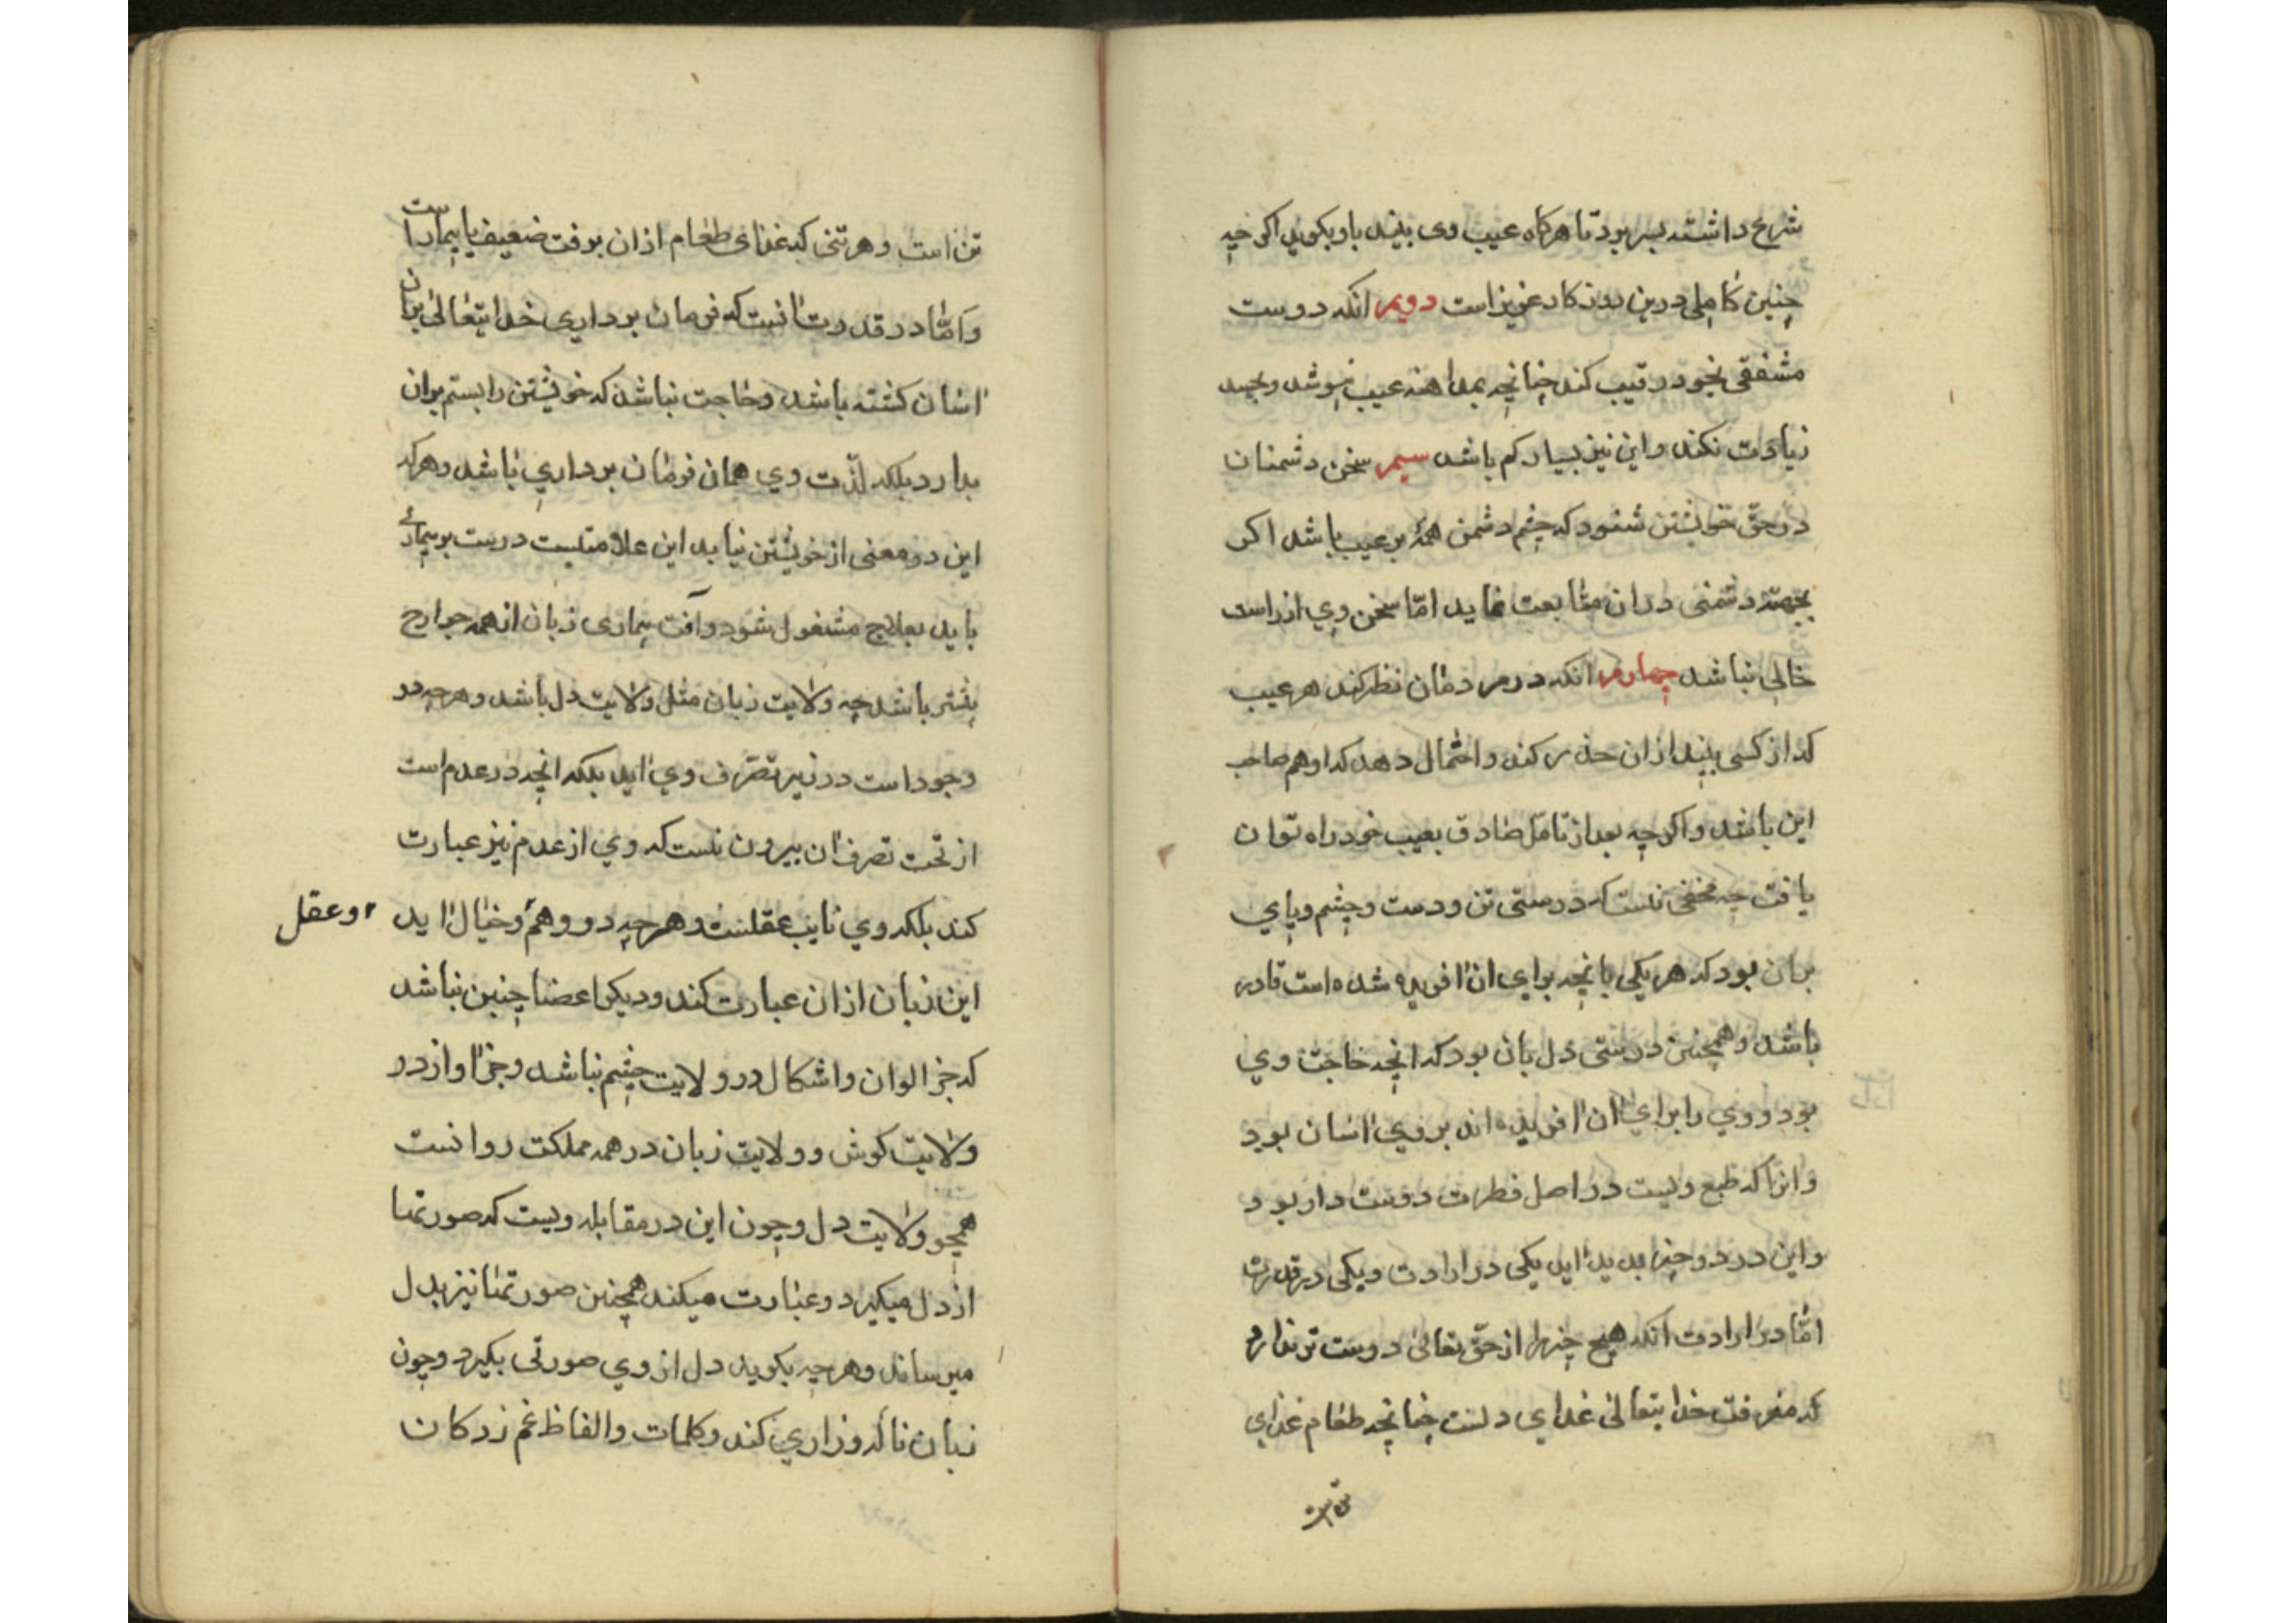 شرع داشته بسر برد تا هرکاه عیب وی بیند باو بکوید اکرچه
چنین کاملی درین روزکار عزیز است دویم انکه دوست
مشفقی بخود رقیب کند چنانچه بمداهنه عیب نپوشد و بحسد
زیادت نکند و این نیز بسیار کم باشد سیم سخن دشمنان
در حقّ خویشتن شنود که چشم دشمن همه بر عیب باشد اکر
بجهتة دشمنی دران متابعت نماید امّا سخن وي از راست
خالي نباشد چهارم انکه در مردمان نظر کند هر عیب
که از کسی بیند ازان حذر کند و احتمال دهد که او هم صاحب
این باشد و اکرچه بعد از تامّل صادق بعیب خود راه توان
یافت چه مخفی نیست که درستی تن و دست و چشم و پاي
بران بود که هر یکی بانچه براي ان افریده شده است قادر
باشد و همچنین درستی دل بان بود که انچه خاجت وي
بود و وي را براي ان افریده اند بر وي اسان بود
و انرا که طبع ویست در اصل فطرت دوست دار بود
و این در دو چیز پدید اید یکی در ارادت و یکی در قدرت
امّا در ارادت انکه هیچ چیز را از حقّ تعالی دوست تر ندارد
که معرفت خدا یتعالی غداي دلست چنانچه طعام غداي
تن است
تن است و هر تنی که غداي طعام ازان برفت ضعیف یا بیمار است
و امّا در قدرت انست که فرمان برداري خدایتعالی بران
اسان کشته باشد و حاجت نباشد که خویشتن را بستم بران
بدارد بلکه لذّت وي همان فرمان برداري باشد و هرکه
این دو معنی از خویشتن نیابد این علامتیست درست بر بیماری
باید بعلاج مشغول شود و آفت بیماری زبان از همه جوارح
بیشتر باشد چه ولایت زبان مثل ولایت دل باشد و هرچه در
وجود است در زیر تصرّف وي اید بلکه انچه در عدم است
از تحت تصرف ان بیرون نیست که وي از عدم نیز عبارت
کند بلکه وي نایب عقلست و هرچه در وهم و خیال اید
و عقل
این زبان ازان عبارت کند و دیکر اعضا چنین نباشد
که جز الوان و اشکال در ولایت چشم نباشد و جز اواز در
ولایت کوش و ولایت زبان در همه مملکت روانست
همچو ولایت دل و چون این در مقابله ویست که صورتها
از دل میکیرد و عبارت میکند همچنین صورتها نیز بدل
میرساند و هرچه بکوید دل از وي صورتی بکیرد و چون
زبان ناله و زاري کند و کلمات و الفاظ غم زدکان